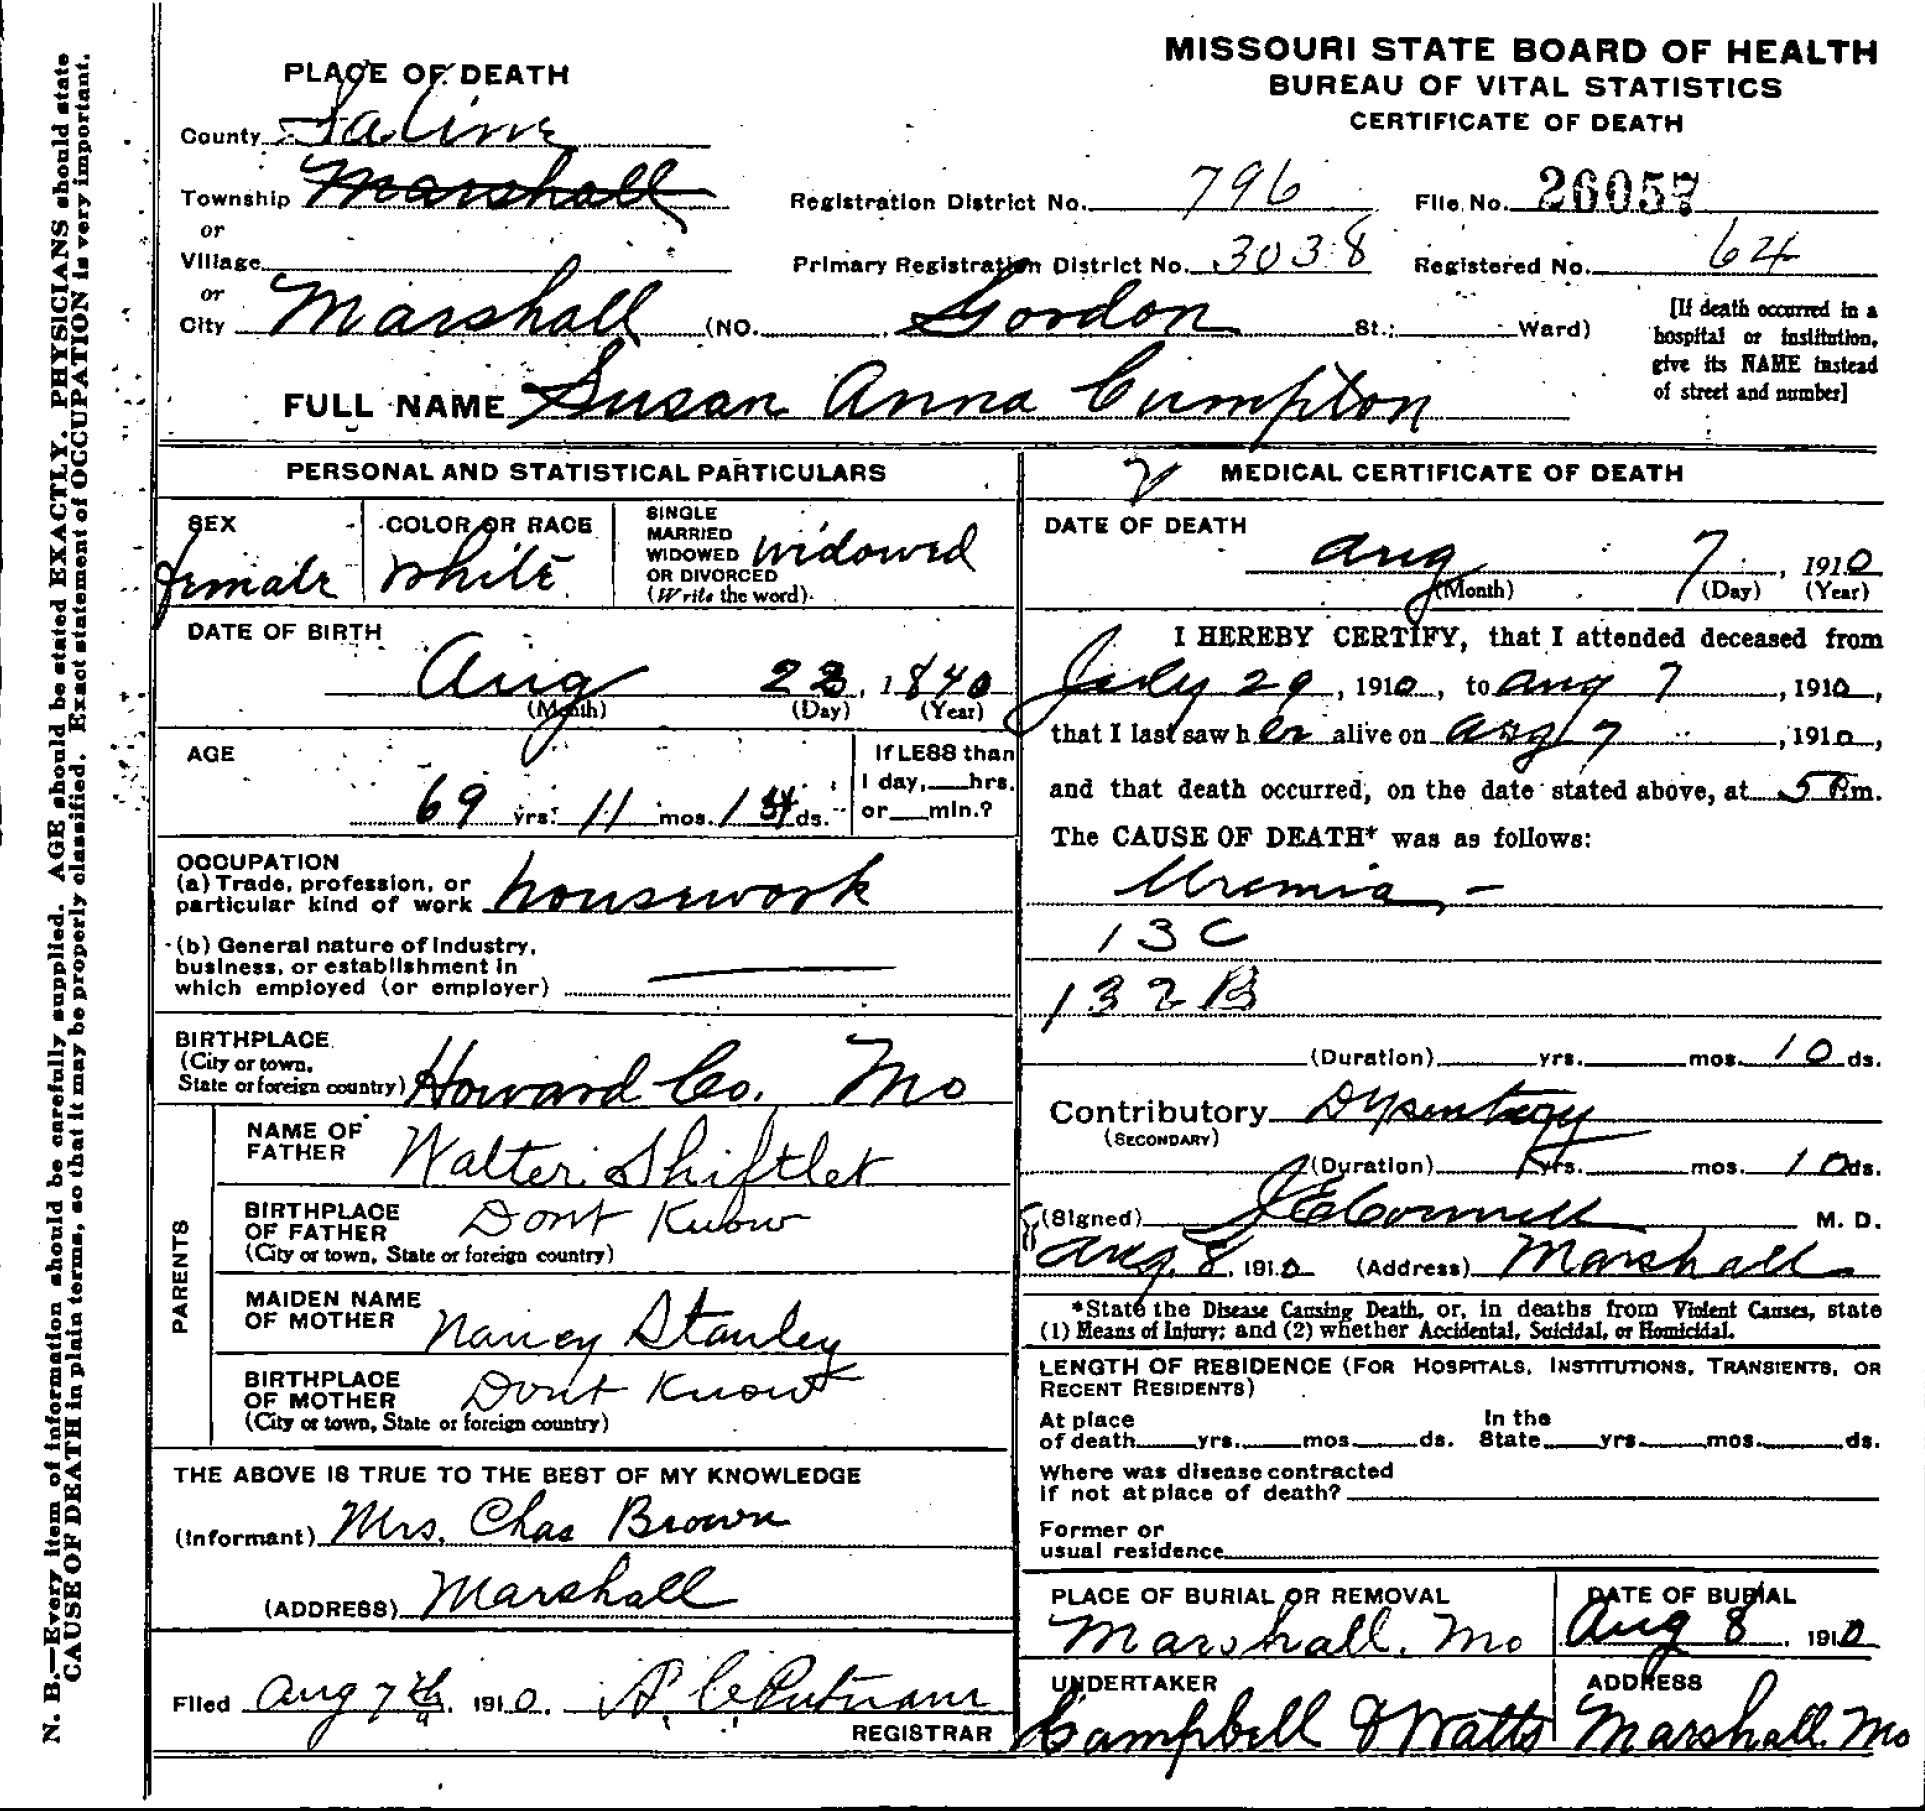 MISSOURI STATE BOARD OF HEALTH
BUREAU OF VITAL STATISTICS
CERTIFICATE OF DEATH
PLACE OF DEATH
County Saline
Township Marshall
or
Village
or
City Marshall (NO. Gordon St.; Ward)
Registration District No. 796 File No. 26057
Primary Registration District No. 3038 Registered No. 64
[If death occurred in a
hospital or institution,
give its NAME instead
of street and number]
FULL NAME Susan Anna Cumpton
PERSONAL AND STATISTICAL PARTICULARS
SEX female
COLOR OR RACE White
SINGLE
MARRIED
WIDOWED
OR DIVORCED
(Write the word)
widowed
DATE OF BIRTH
Aug 23, 1840
(Month) (Day) (Year)
AGE
69 yrs. 11 mos. 14 ds.
If LESS than
1 day, hrs.
or min.?
OCCUPATION
(a) Trade, profession, or
particular kind of work housework
(b) General nature of industry,
business, or establishment in
which employed (or employer)
BIRTHPLACE
(City or town,
State or foreign country) Howard Co. Mo
PARENTS
NAME OF
FATHER Walter Shiftlet
BIRTHPLACE
OF FATHER Dont Know
(City or town, State or foreign country)
MAIDEN NAME
OF MOTHER Nancy Stanley
BIRTHPLACE
OF MOTHER Dont Know
(City or town, State or foreign country)
THE ABOVE IS TRUE TO THE BEST OF MY KNOWLEDGE
(Informant) Mrs. Chas Brown
(ADDRESS) Marshall
Filed Aug 7th, 1910. Putnam
REGISTRAR
MEDICAL CERTIFICATE OF DEATH
DATE OF DEATH
Aug 7, 1910
(Month) (Day) (Year)
I HEREBY CERTIFY, that I attended deceased from
July 29, 1910, to Aug 7, 1910,
that I last saw her alive on Aug 7, 1910,
and that death occurred, on the date stated above, at 5 Pm.
The CAUSE OF DEATH* was as follows:
Uremia -
13C
132B
(Duration) yrs. mos. 10 ds.
Contributory Dysentery
(SECONDARY)
(Duration) yrs. mos. 10 ds.
(Signed) M. D.
Aug. 8, 1910 (Address) Marshall
*State the Disease Causing Death, or, in deaths from Violent Causes, state
(1) Means of Injury; and (2) whether Accidental, Suicidal, or Homicidal.
LENGTH OF RESIDENCE (FOR HOSPITALS, INSTITUTIONS, TRANSIENTS, OR
RECENT RESIDENTS)
At place
of death yrs. mos. ds.
In the
State yrs. mos. ds.
Where was disease contracted
if not at place of death?
Former or
usual residence
PLACE OF BURIAL OR REMOVAL
Marshall, Mo
DATE OF BURIAL
Aug 8, 1910
UNDERTAKER
Campbell & Watts
ADDRESS
Marshall Mo
N. B.—Every item of information should be carefully supplied. AGE should be stated EXACTLY. PHYSICIANS should state
CAUSE OF DEATH in plain terms, so that it may be properly classified. Exact statement of OCCUPATION is very important.